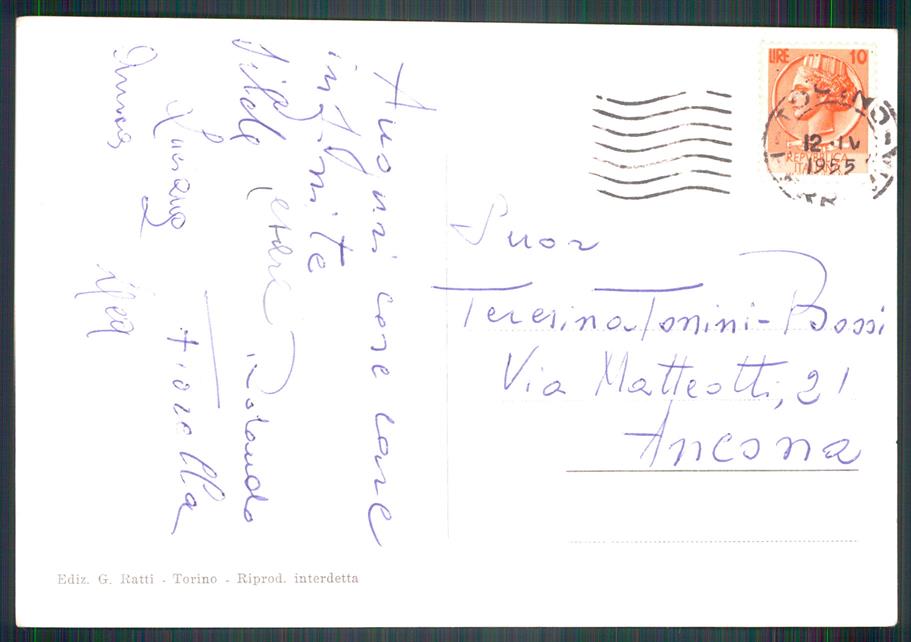 Auguri care care
infinite
Cesare Rolando
Fiorella
LIRE 10
REPUBBLICA
ITALIANA
TORINO
12 . IV
1955
Suor
Teresina Tonini-Bossi
Via Matteotti, 21
Ancona
Ediz. G. Ratti - Torino - Riprod. interdetta